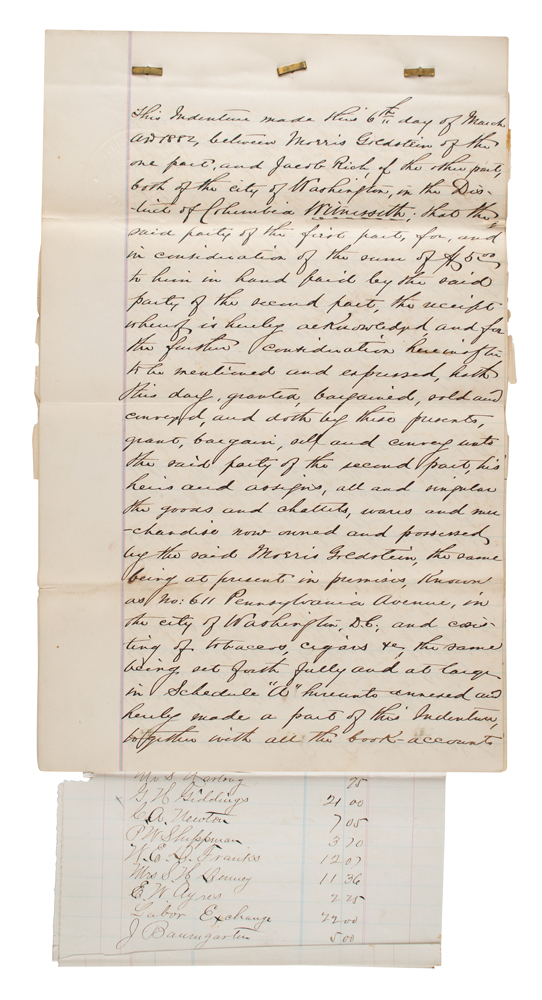 This Indenture made this 6th day of March
AD 1882, between Morris Goldstein of the
one part, and Jacob Rich, of the other part,
both of the city of Washington, in the Dis-
-trict of Columbia Witnesseth; that the
said party of the first part, for, and
in consideration of the sum of $5.00
to him in hand paid by the said
party of the second part, the receipt
whereof is hereby acknowledged and for
the further consideration hereinafter
to be mentioned and expressed, hath
this day, granted, bargained, sold and
conveyed, and doth by these presents,
grant, bargain, sell and convey unto
the said party of the second part, his
heirs and assigns, all and singular
the goods and chattels, wares and mer
-chandise now owned and possessed
by the said Morris Goldstein, the same
being at present in premises, Known
as No: 611 Pennsylvania Avenue, in
the city of Washington, D.C. and consis-
ting of tobaccos, cigars &c, the same
being set forth fully and at large
in Schedule "A" hereunto annexed and
hereby made a part of this Indenture,
together with all the book-accounts
Mr S. 75
G. H Giddings 21 00
C. A. Newton 7 05
P W Shippman 3 70
W. E. S. Franks 12 07
Mrs S. H. 11 36
E. W. Ayres 2 25
Labor Exchange 22 00
J Baumgarten 5 00